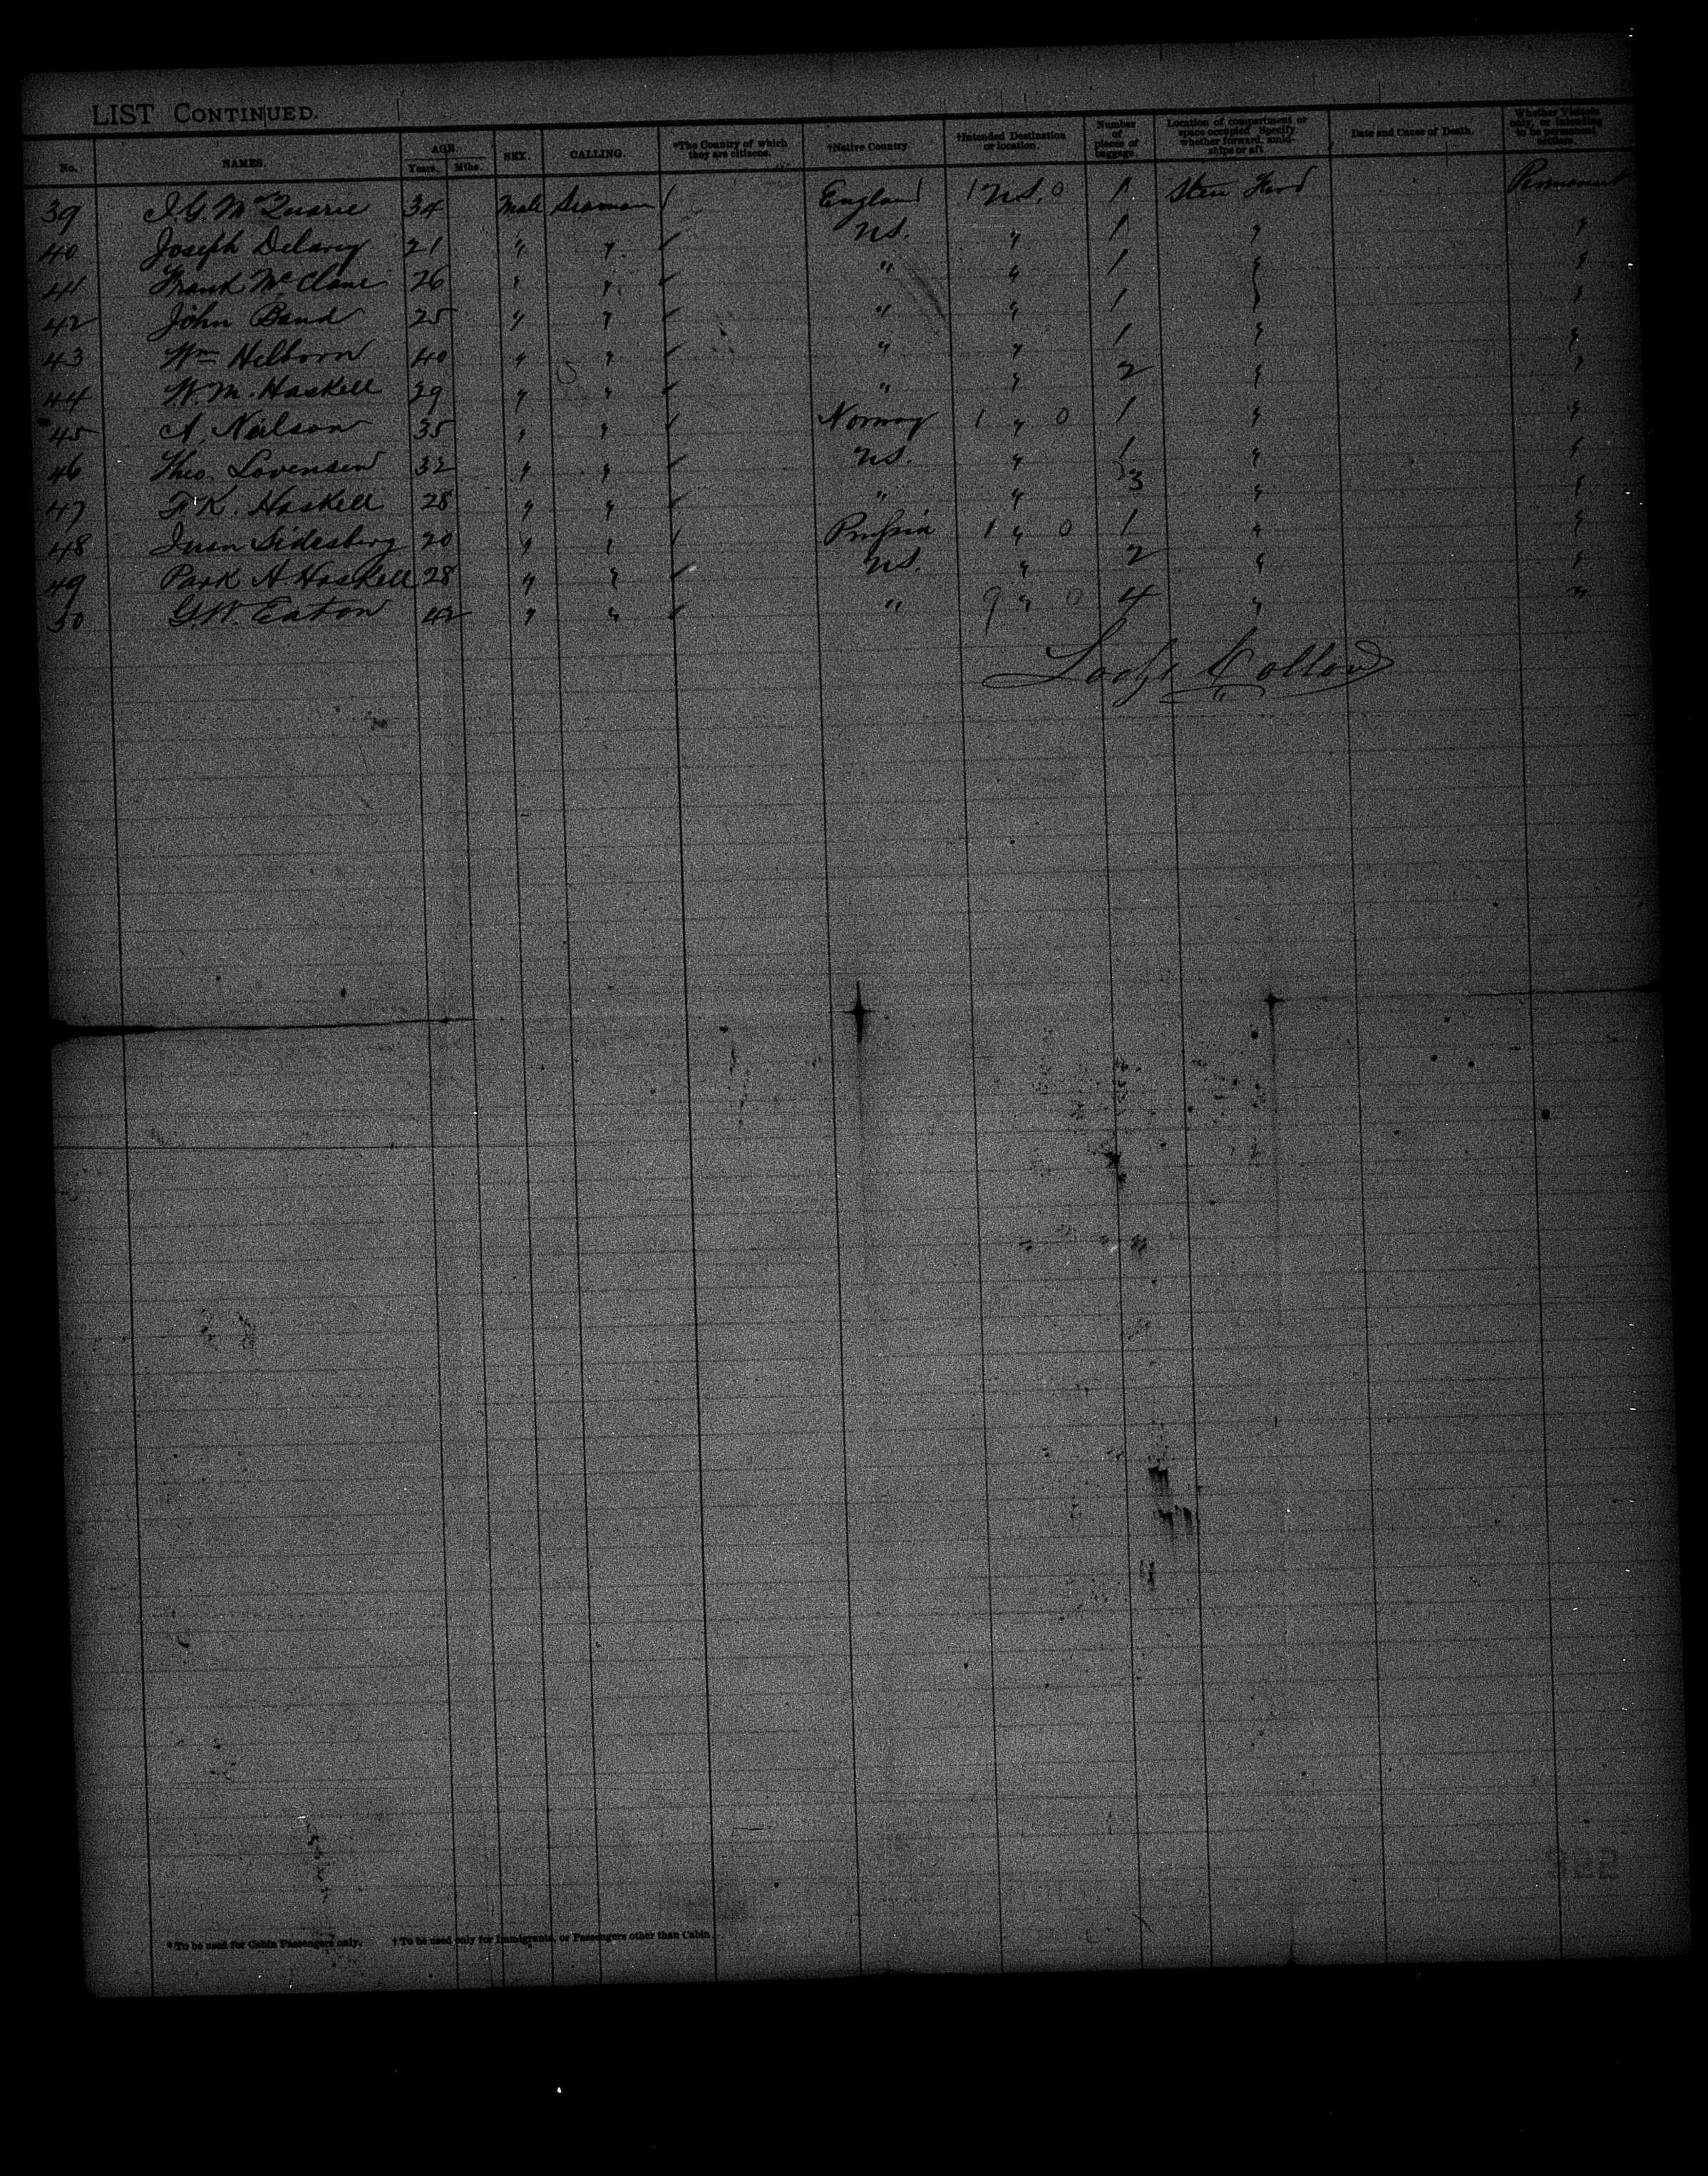 LIST CONTINUED.
No. NAMES. AGE. Years. Mths. SEX. CALLING. *The Country of which they are citizens. †Native Country †Intended Destination or location. Number of pieces of baggage. Location of compartment or space occupied. Specify whether forward, amidships or aft. Date and Cause of Death. Whether Visitors only, or intending to be permanent settlers.
39 J. G. McQuarie 34 Male Seaman / England 1 U.S. 0 1 Permanent
40 Joseph 21 " " ✓ U.S. " 1 " "
41 Frank McClane 26 " " ✓ " " 1 " "
42 John Band 25 " " ✓ " " 1 " "
43 Wm Hilborn 40 " " ✓ " " 1 " "
44 W. M. Haskell 29 " " ✓ " " 2 " "
45 A. Neilson 35 " " ✓ Norway 1 " 0 1 " "
46 Theo. Lovensen 32 " " ✓ U.S. " 1 " "
47 F. K. Haskell 28 " " ✓ " " 3 " "
48 20 " " / Prussia 1 " 0 1 " "
49 Park A Haskell 28 " " ✓ U.S. " 2 " "
50 G. W. Eaton 42 " " ✓ " 9 " 0 4 " "
* To be used for Cabin Passengers only. † To be used only for Immigrants, or Passengers other than Cabin.